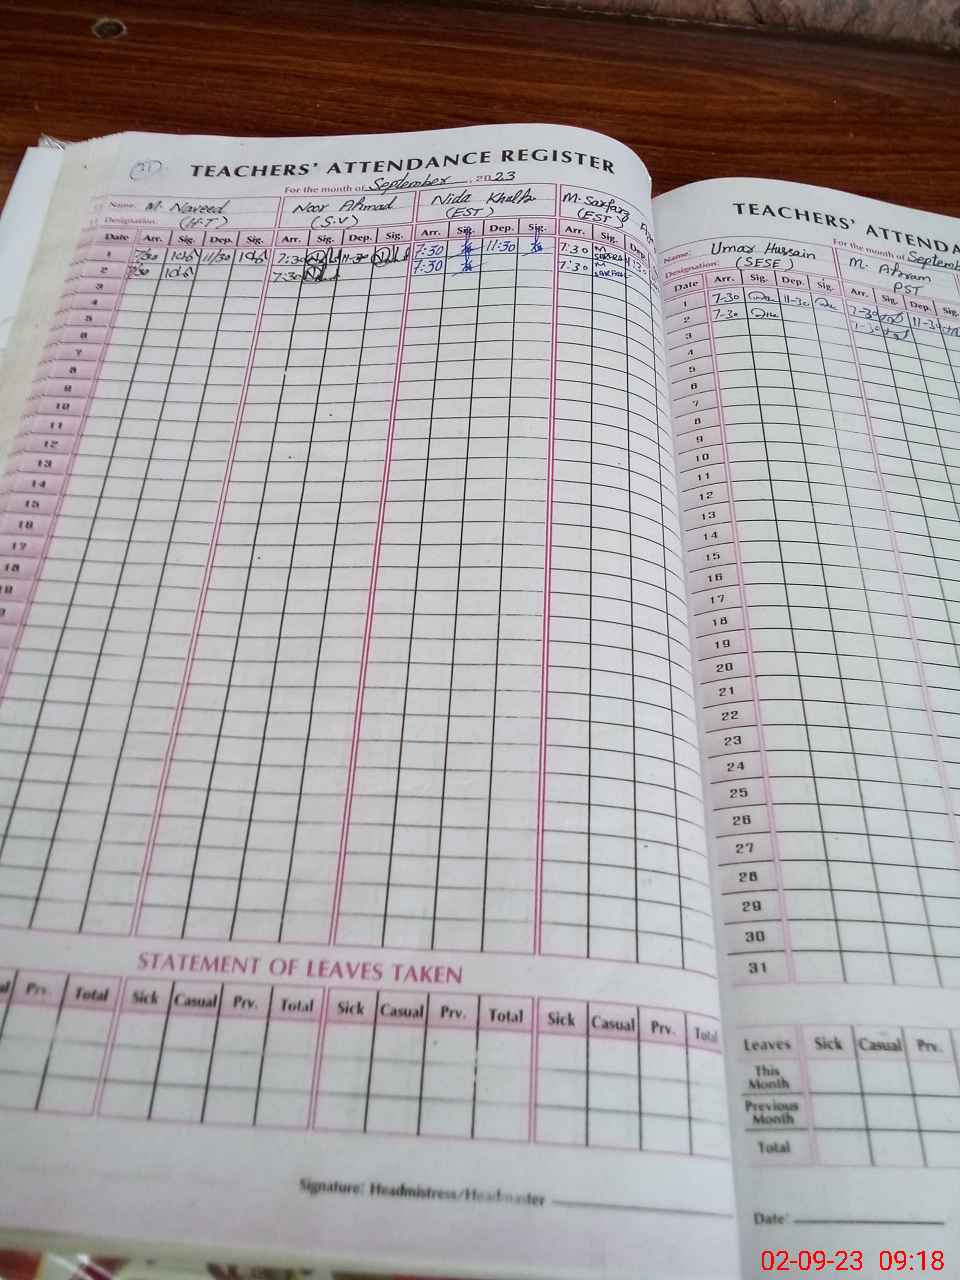 TEACHERS' ATTENDANCE REGISTER
For the month of September 2023
Name: M. Naveed Noor Ahmad Nida M. Sarfarz
Designation: (H.T) (S.V) (EST) (EST)
Date Arr. Sig. Dep. Sig. Arr. Sig. Dep. Sig. Arr. Sig. Dep. Sig. Arr. Sig. Dep.
1 7:30 11:30 7:30 11:30 7:30 11:30 7:30
2 7:30 7:30 7:30 7:30
3
4
5
6
7
8
9
10
11
12
13
14
15
16
17
18
STATEMENT OF LEAVES TAKEN
Prv. Total Sick Casual Prv. Total Sick Casual Prv. Total Sick Casual Prv. Total
Signature: Headmistress/Headmaster
TEACHERS' ATTENDA
For the month of Septemb
Name: Umar Hussain M. Ahram
Designation: (SESE) PST
Date Arr. Sig. Dep. Sig. Arr. Sig. Dep. Sig.
1 7-30 11-30 7-30 11-30
2 7-30 7-30
3
4
5
6
7
8
9
10
11
12
13
14
15
16
17
18
19
20
21
22
23
24
25
26
27
28
29
30
31
Leaves Sick Casual Prv.
This Month
Previous Month
Total
Date:
02-09-23 09:18